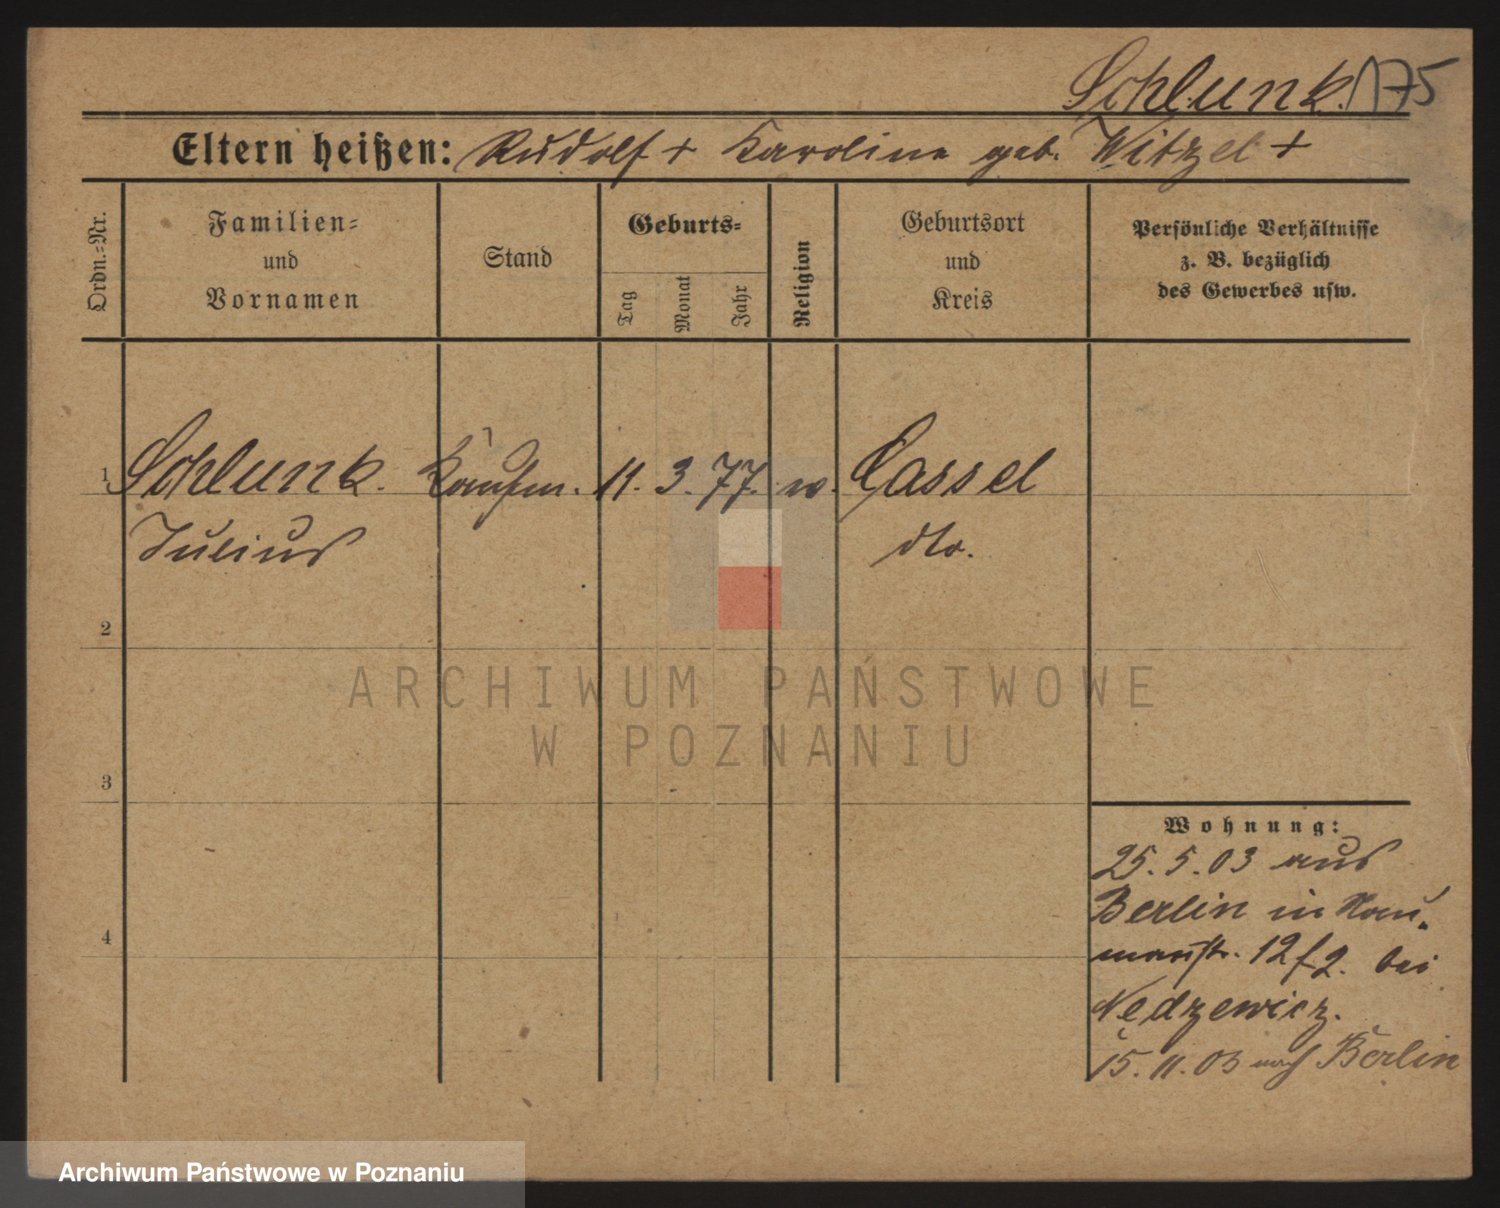 Schlunk. 175
Eltern heißen: Rudolf + Karoline geb. Witzel +
Ordn.=Nr.
Familien=
und
Vornamen
Stand
Geburts=
Tag
Monat
Jahr
Religion
Geburtsort
und
Kreis
Persönliche Verhältnisse
z. B. bezüglich
des Gewerbes usw.
1 Schlunk. Kaufm. 11. 3. 77. Cassel
Julius dto.
2
ARCHIWUM PAŃSTWOWE
W POZNANIU
3
Wohnung:
25. 5. 03 aus
Berlin in Nau-
mannstr. 12 f 2. bei
Nędzewicz.
15. 11. 03 nach Berlin
4
Archiwum Państwowe w Poznaniu